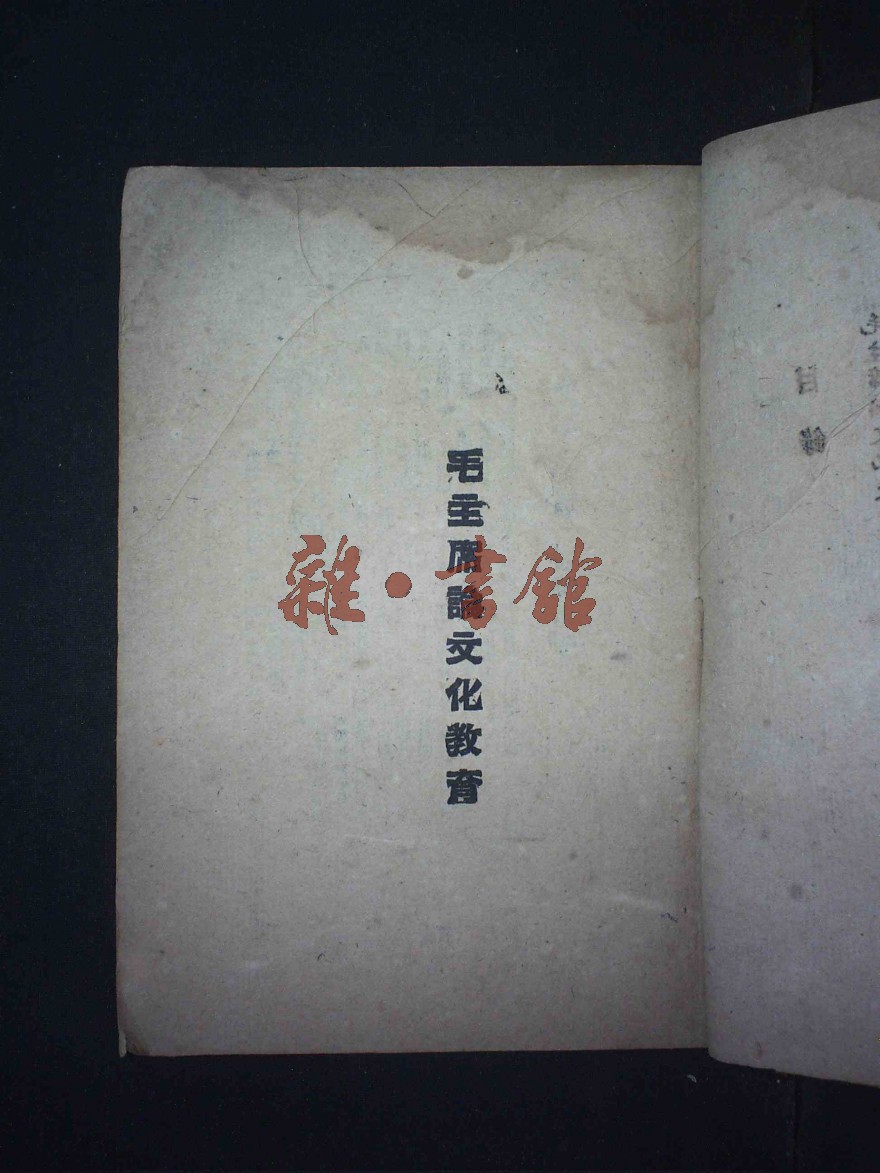 毛主席論文化教育
雜·書舘
目錄
二